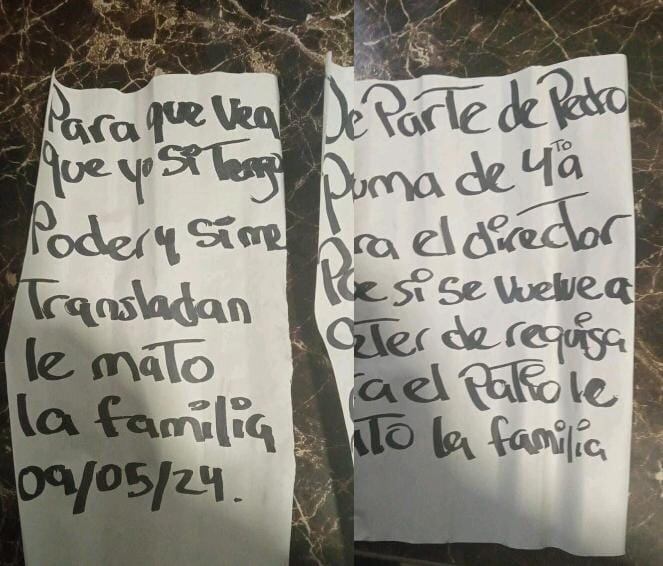 Para que vea
que yo si Tengo
Poder y si me
Transladan
le maTo
la familia
09/05/24.
De ParTe de Pedro
puma de 4To a
ra el director
si se vuelve a
eTer de requisa
a el PaTio le
aTo la familia